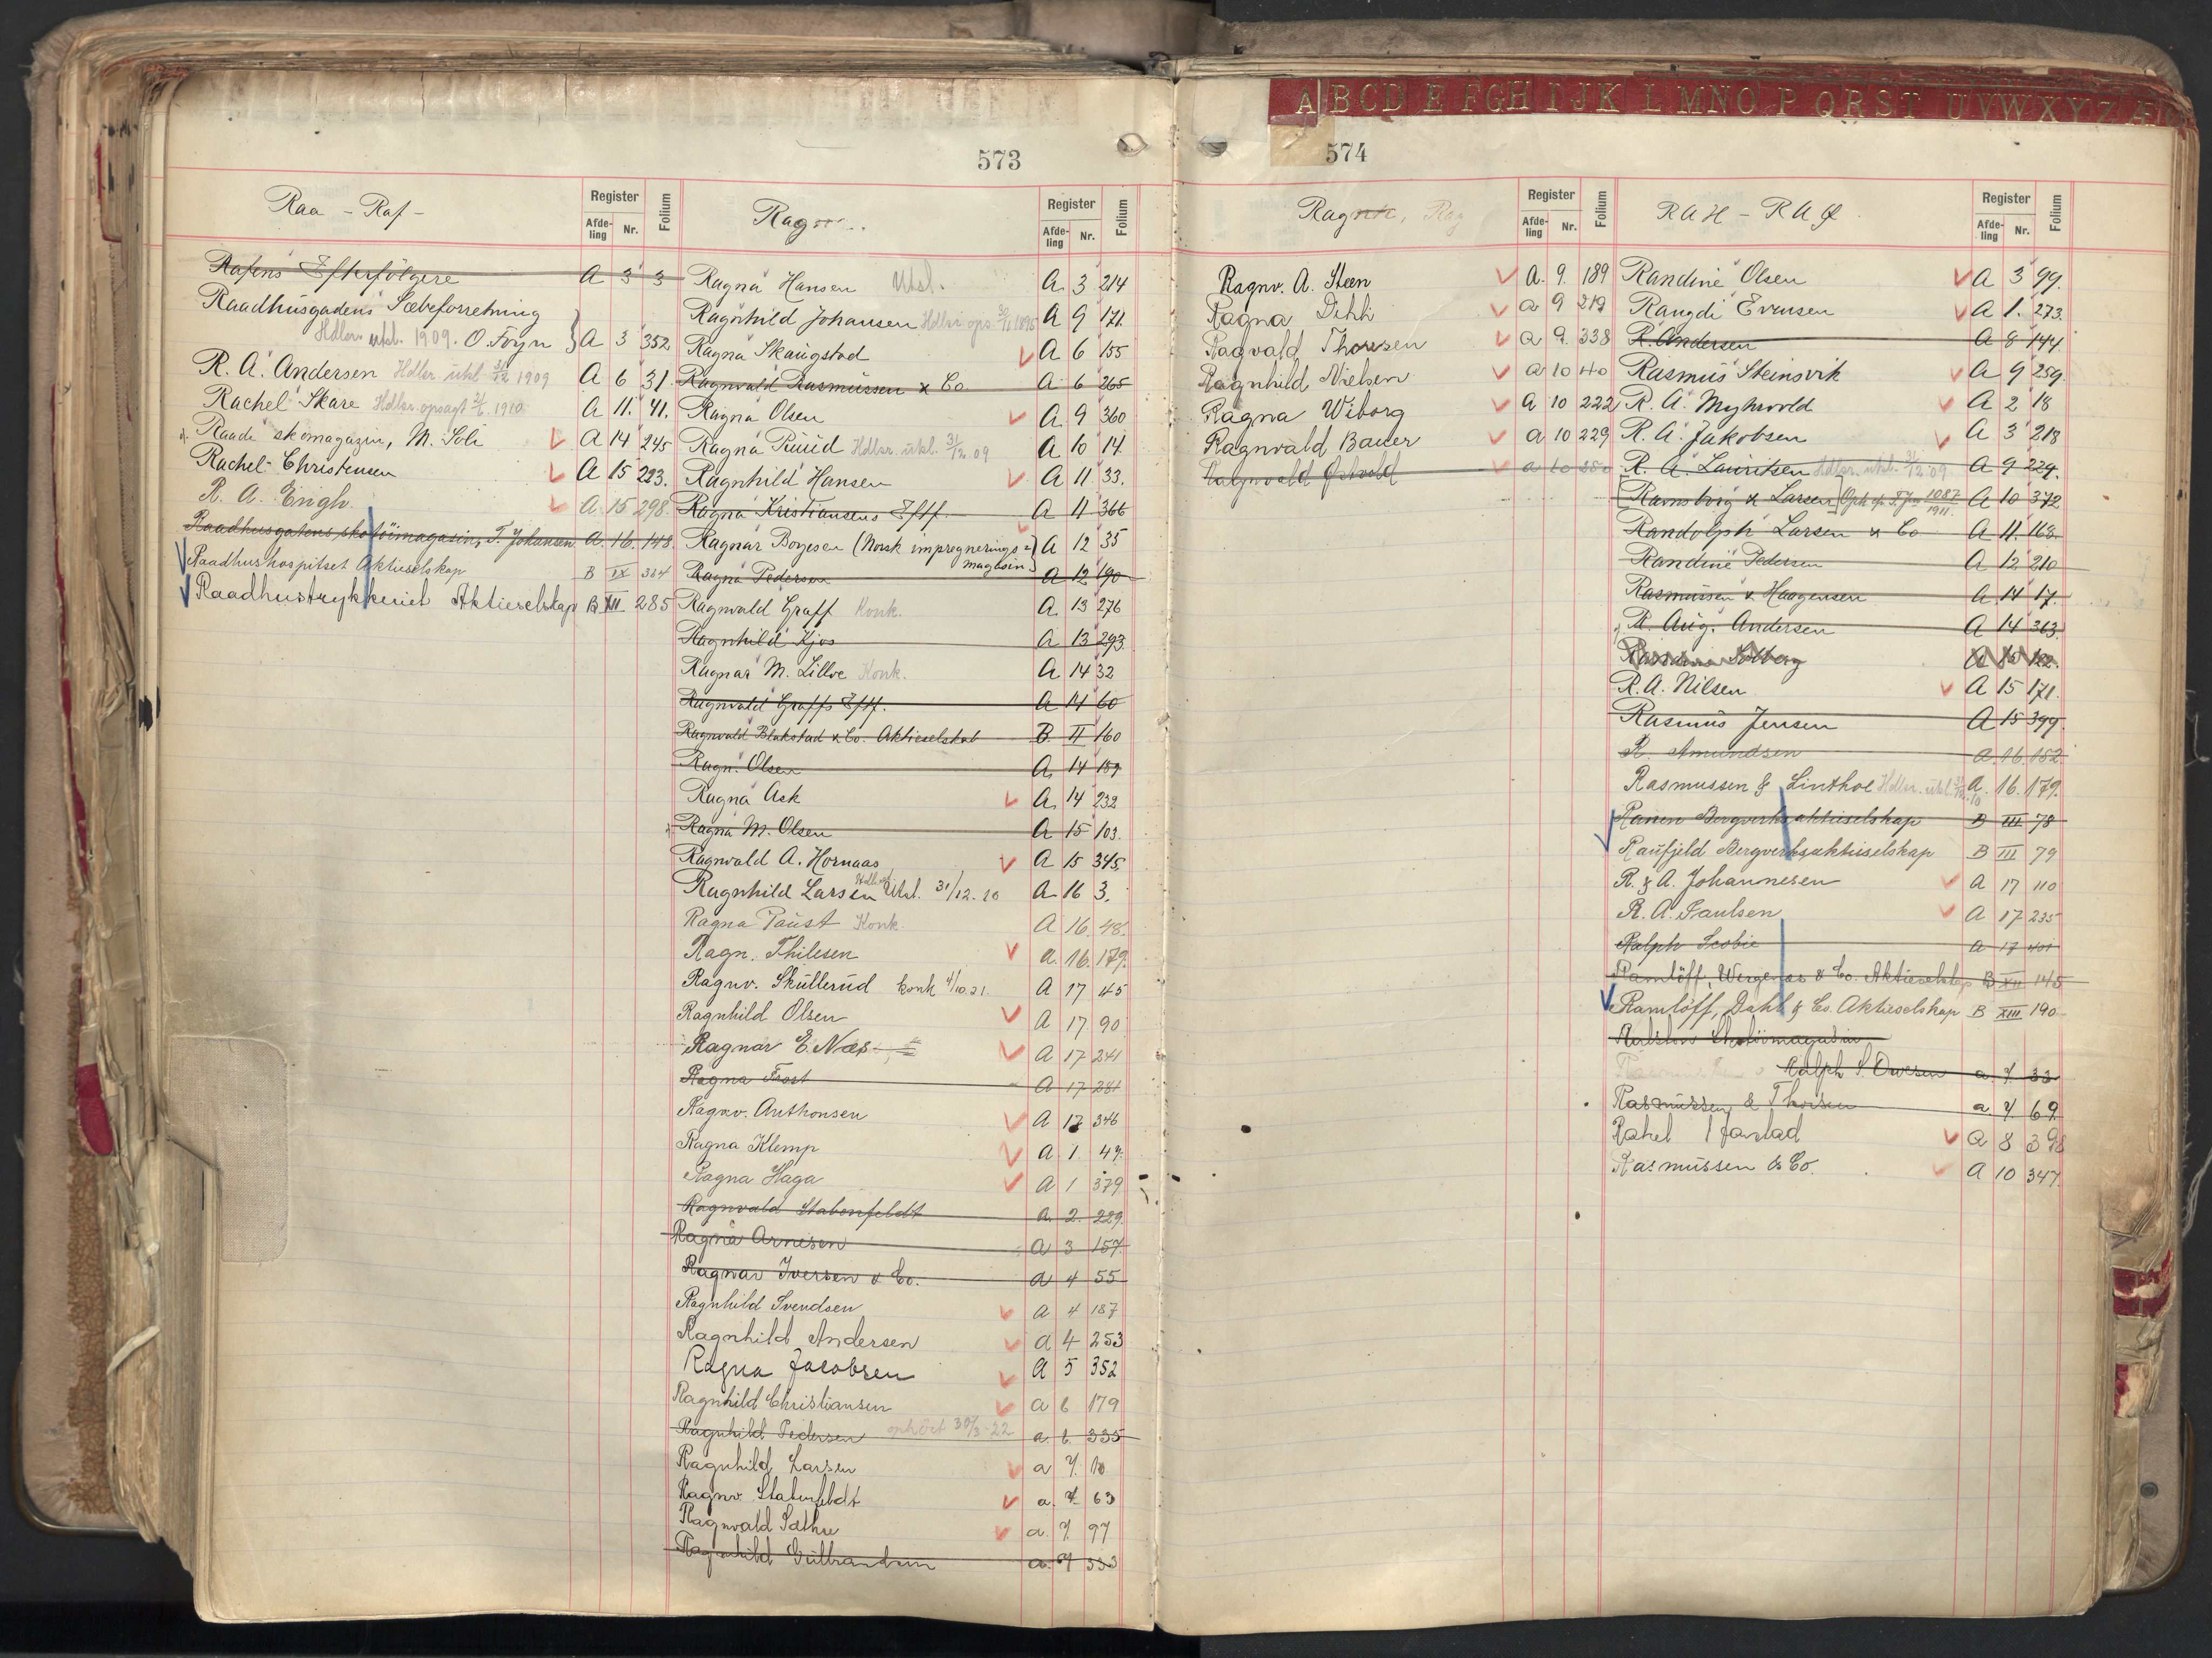 573
Raa - Raf -
Register
Afde-ling Nr. Folium
Rafens Efterfølgere A 3 3
Raadhusgadens Sæbeforretning
Hdlsr. utsl. 1909. O. Foyn } A 3 352
R. A. Andersen Hdlsr. utsl. 31/12 1909 A 6 31.
Rachel Skare Hdlsr. opsagt 1910 A 11. 41.
Raade skomagazin, M. Soli A 14 245
Rachel Christensen A 15 223.
R. A. Engh. A. 15 298
Raadhusgatens skotöimagasin, T. Johansen A. 16. 148.
Raadhushospitset Aktieselskap B IX 364
Raadhustrykkeriet Aktieselskap B XII. 285
Rag
Register
Afde-ling Nr. Folium
Ragna Hansen Utsl. A. 3 214
Ragnhild Johansen A 9 171.
Ragna Skaugstad A 6 155
Ragnvald Rasmussen & Co. A 6 265
Ragna Olsen A. 9 360
Ragna Ruud Hdlsr. utsl. 31/12.09 A 10 14.
Ragnhild Hansen A 11 33.
Ragna Kristiansens Eftf A 11 366
Ragnar Borgesen (Norsk impregnerings-magasin) A 12 35
Ragna Pedersen A 12 190
Ragnvald Graff Konk. A. 13 276
Ragnhild Kjos A 13 293
Ragnar M. Lilloe Konk. A. 14 32
Ragnvald Graffs Eftf. A 14 60
Ragnvald Blakstad & Co. Aktieselskab B. II 160
Ragn. Olsen A. 14 189
Ragna Ask A. 14 232
Ragna M. Olsen A 15 103.
Ragnvald A. Hornaas A 15 345,
Ragnhild Larsen Utsl. 31/12.20 A 16 3.
Ragna Paust Konk. A 16. 48.
Ragn. Thilesen A. 16. 179.
Ragnv. Skullerud konk 4/10 21. A 17 45
Ragnhild Olsen A 17 90
Ragnar E. Næs A 17 241
Ragna Frost A 17 281
Ragnv. Anthonsen A 17 346
Ragna Klemp A. 1. 49.
Ragna Haga A 1 379
Ragnvald Stabenfeldt A. 2. 229.
Ragna Arnesen A 3 157.
Ragnar Iversen & Co. A 4 55
Ragnhild Svendsen A 4 187
Ragnhild Andersen A 4 253
Ragna Jacobsen A 5 352
Ragnhild Christiansen A 6 179
Ragnhild Pedersen ophört 30/3-22 A. 6. 335
Ragnhild Larsen A 7. 10
Ragnv. Stabenfeldt A. 7. 63
Ragnvald Sæthre A. 7. 97
Ragnhild Gulbrandsen A. 7 333
A B C D E F G H I J K L M N O P Q R S T U V W X Y Z Æ
574
Ragn, Rag
Register
Afde-ling Nr. Folium
Ragnv. A. Steen A. 9. 189
Ragna Dihli A 9 219
Ragvald Thoresen A 9. 338
Ragnhild Nielsen A 10 40
Ragna Wiborg A 10 222
Ragnvald Bauer A 10 229
Ragnvald A 10 280
RAH - RAØ
Register
Afde-ling Nr. Folium
Randine Olsen A 3 99.
Rangdi Evensen A 1. 273.
R. Andersen A 8 144.
Rasmus Steinsvik A 9 259.
R. A. Myhrvold A 2 18
R. A. Jakobsen A 3 218
R. A. Lauritsen Hdlsr. utsl. 31/12.09 A 9 224.
Ramsborg & Larsen 1087/1911. A 10 372
Randolph Larsen & Co A 11. 168.
Randine Pedersen A 12 210
Rasmussen & Haagensen A. 14 17.
R. Aug. Andersen A 14 363.
Solberg A 15 122.
R. A. Nilsen A 15 171.
Rasmus Jensen A 15 399.
R. Amundsen A. 16. 152.
Rasmussen & Linthoe Hdlsr. utsl. A. 16. 179.
Ranen Bergverksaktieselskap B III 78
Raufjeld Bergverksaktieselskap B III 79
R. & A. Johannesen A 17 110
R. A. Paulsen A 17 235
Ralph Scobie A 17 401
Ramlöff, & Co. Aktieselskap B XII 145
Ramlöff, Dahl & Co. Aktieselskap B XIII 190
Skotöimagasin
Ralph S. Owesen A. 7. 33
Rasmussen & Thorsen A 7. 69.
Rakel A 8 398
Rasmussen & Co. A 10 347.